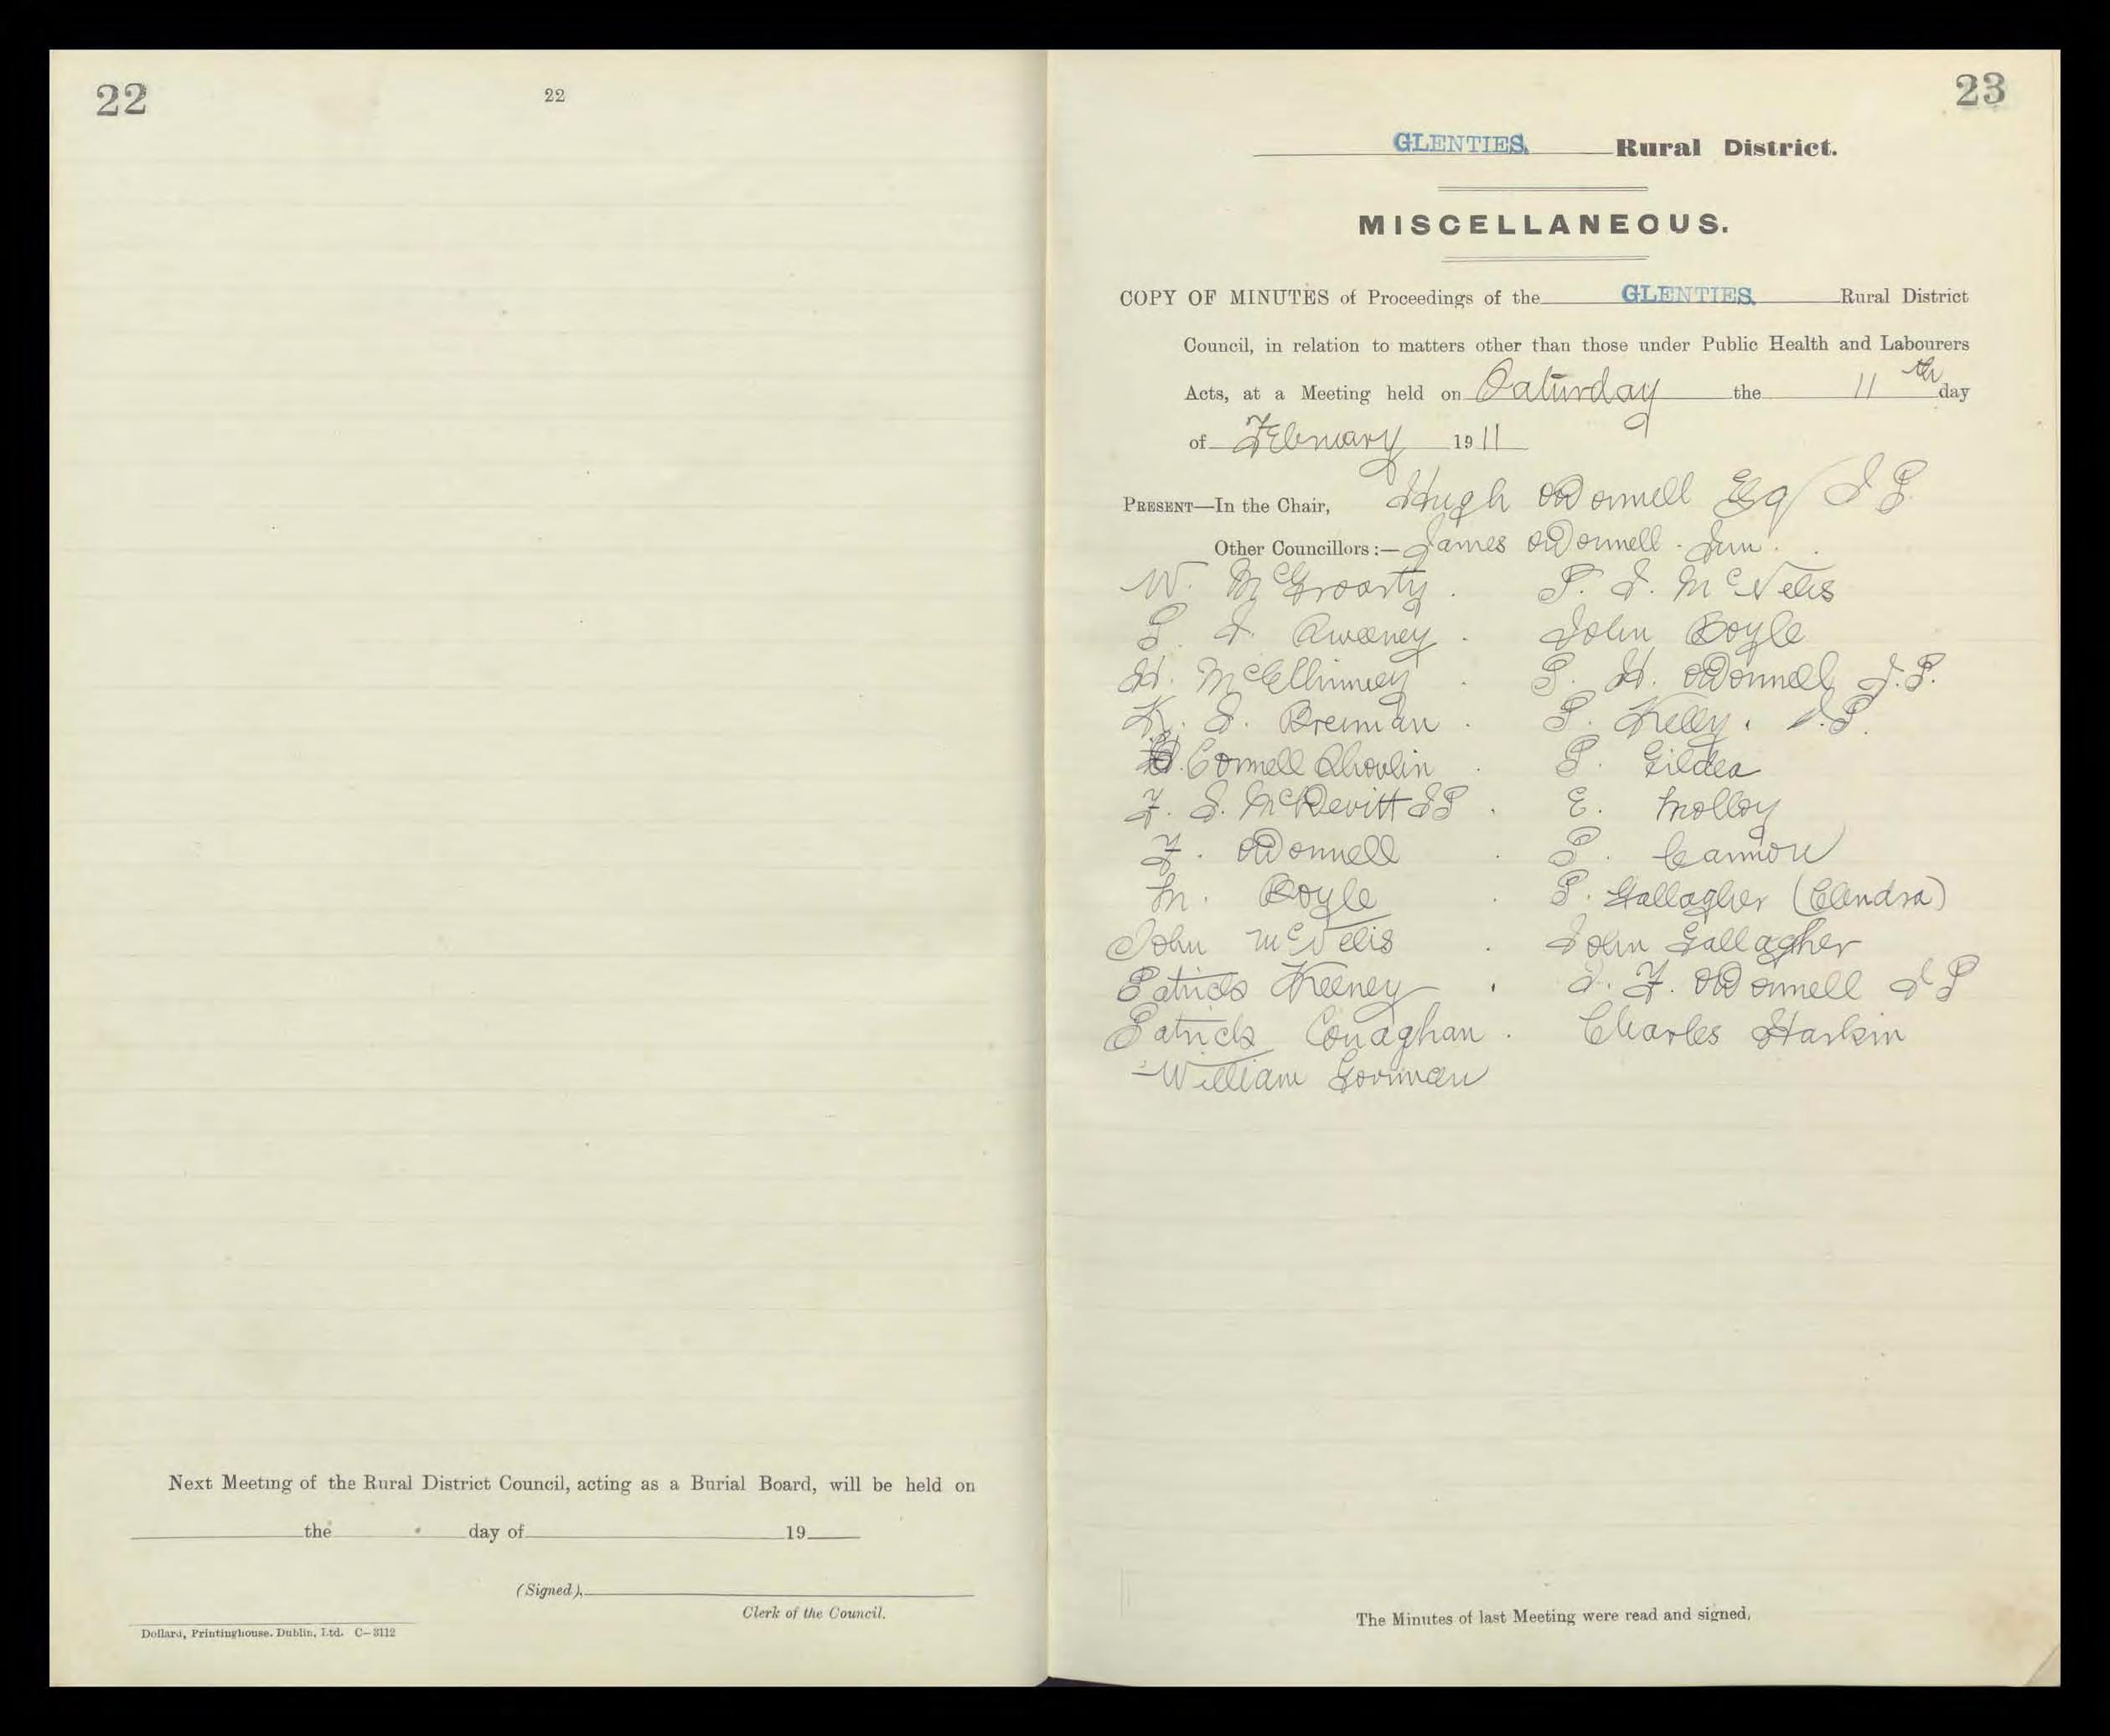 22
22
Next Meeting of the Rural District Council, acting as a Burial Board, will be held on
the day of 19
(Signed),
Clerk of the Council.
Dollard, Printinghouse, Dublin, Ltd. C-3112
23
GLENTIES. Rural District.
MISCELLANEOUS.
COPY OF MINUTES of Proceedings of the GLENTIES. Rural District
Council, in relation to matters other than those under Public Health and Labourers
Acts, at a Meeting held on Saturday the 11th day
of February 1911
PRESENT—In the Chair, Hugh O'Donnell Esq J P.
Other Councillors:— James O'Donnell. Jun.
W. McGroarty. P. J. McNelis
P. J. Sweeney. John Boyle
H. McElhinney. P. H. O'Donnell, J.P.
K. J. Brennan. P. Kelly. J.P.
Connell Showlin. P. Gildea
F. J. McDevitt JP. E. Molloy
F. O'Donnell. P. Cannon
M. Boyle. P. Gallagher (Clendra)
John McNelis. John Gallagher
Patrick Keeney. J. F. O'Donnell J P
Patrick Conaghan. Charles Harkin
William Gorman
The Minutes of last Meeting were read and signed.